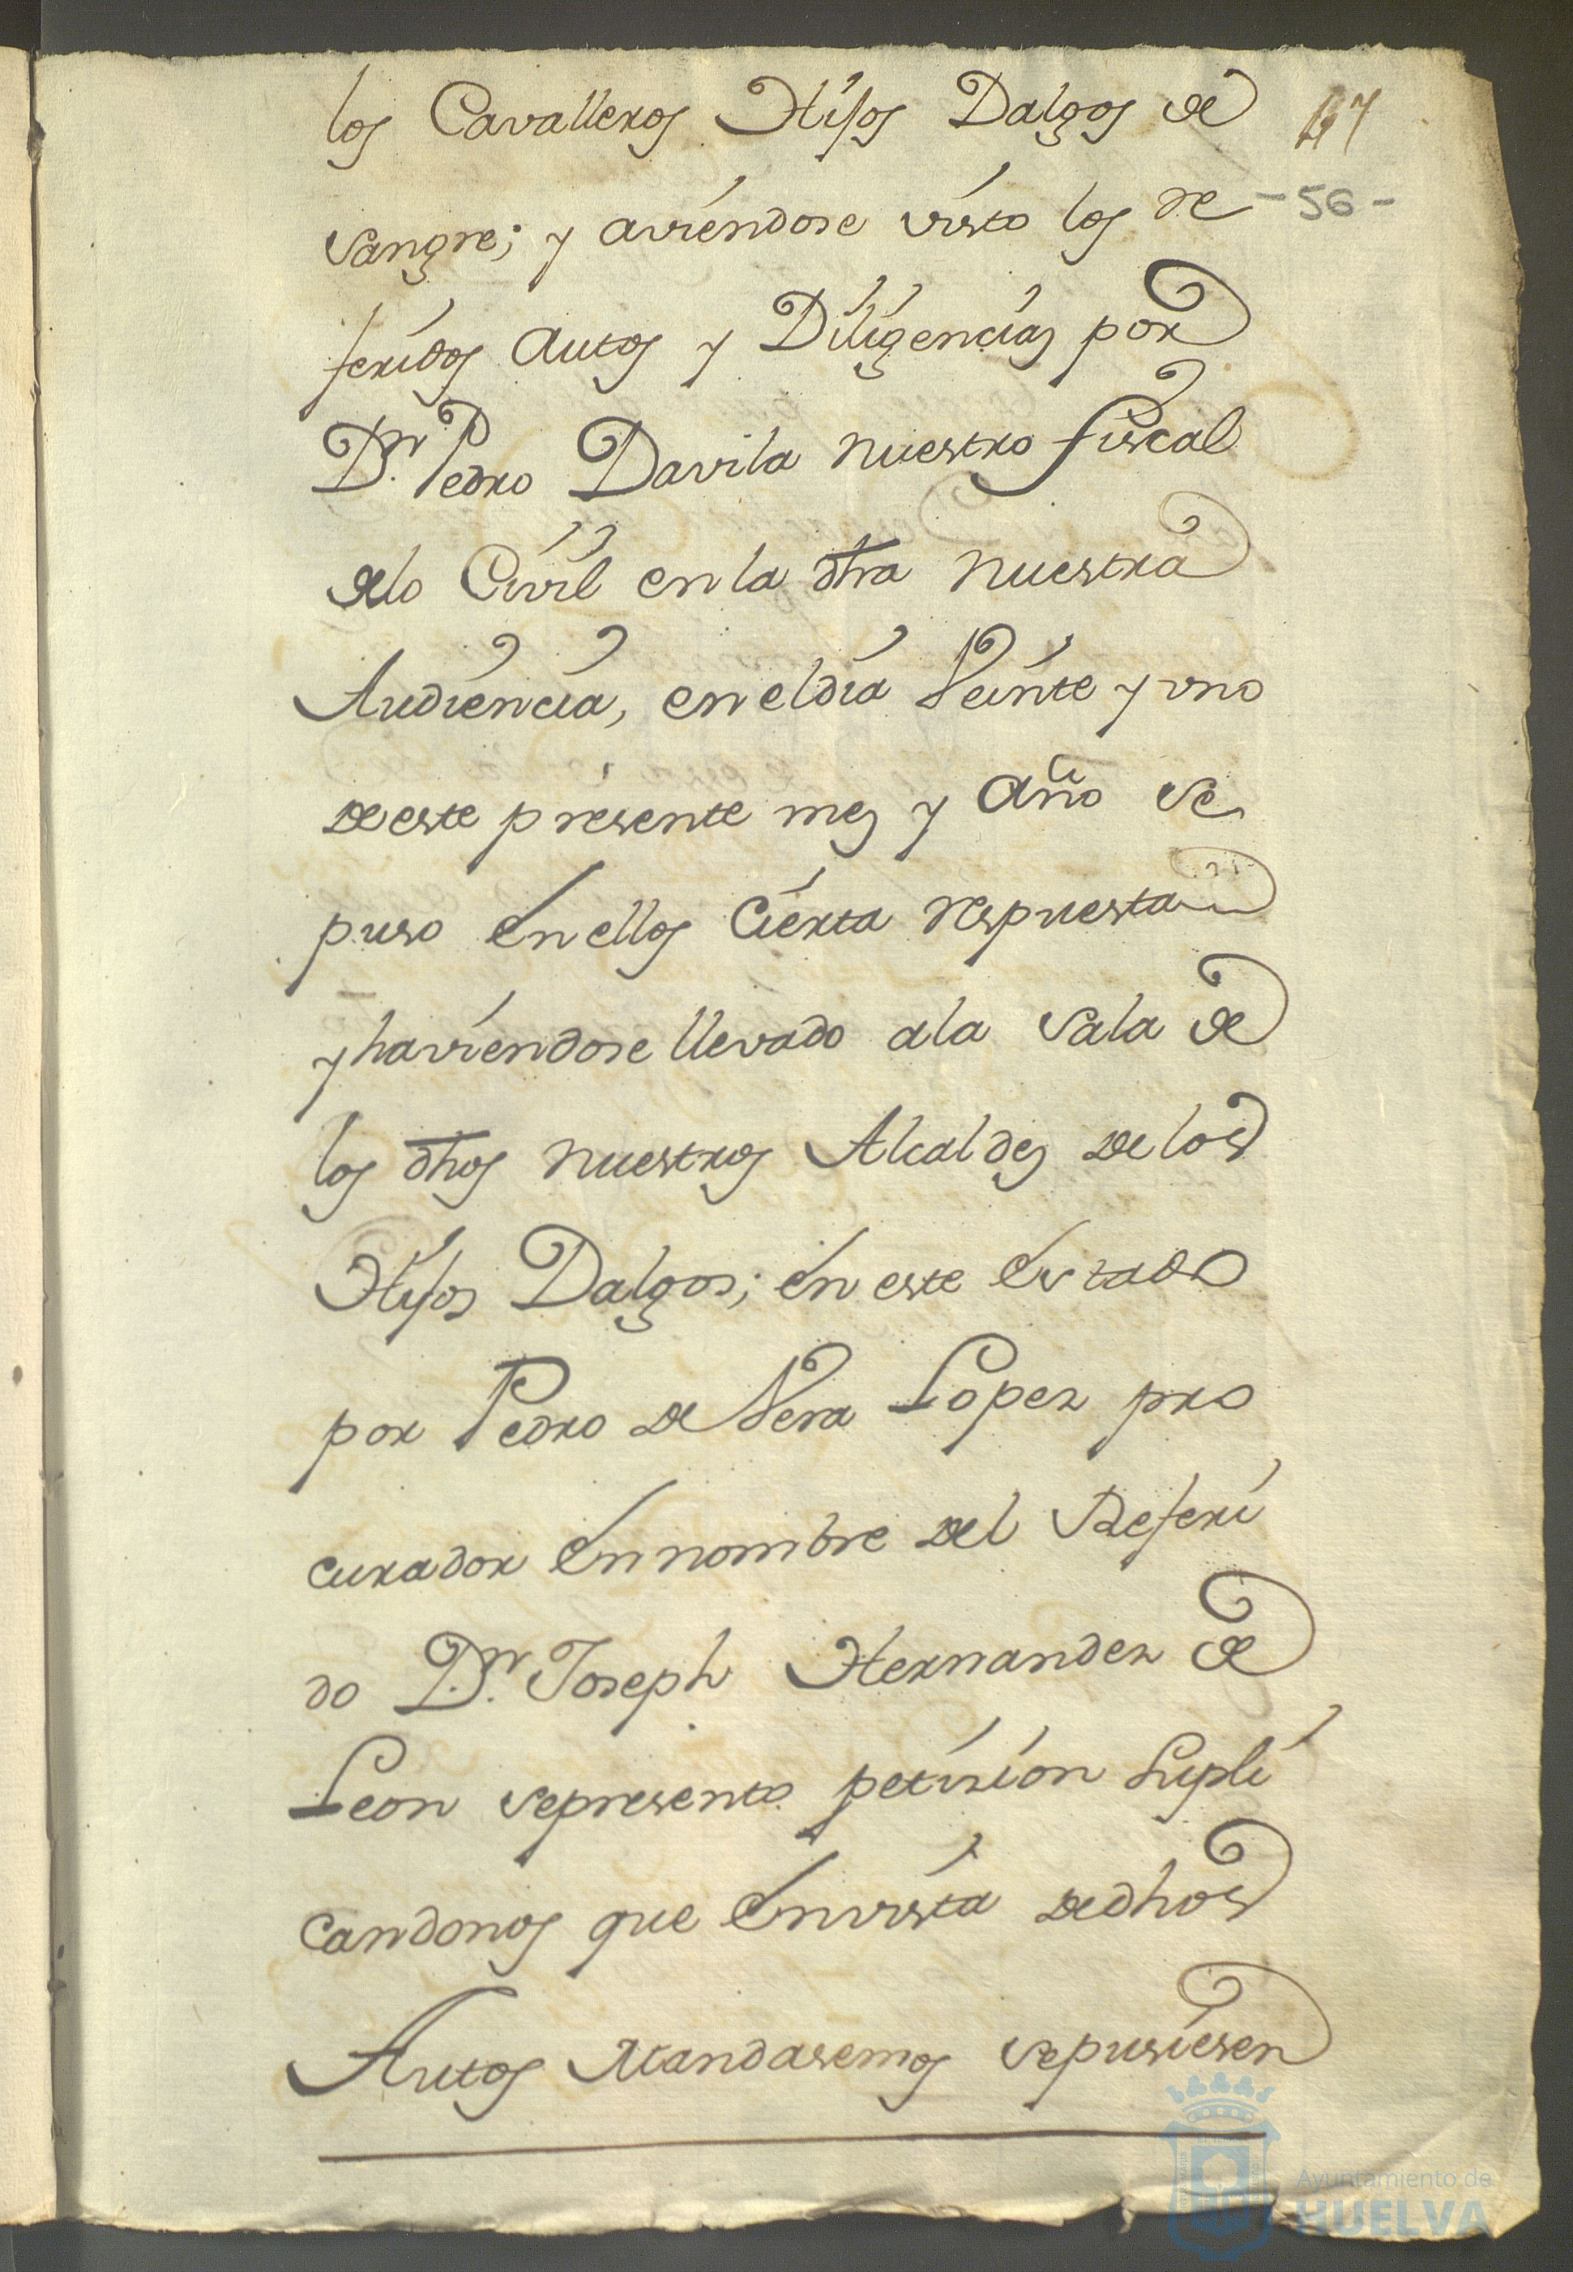 los Cavalleros Hijos Dalgos de
sangre; y aviendose visto los re
- 56 -
feridos autos y Diligencias por
Dn. Pedro Davila nuestro fiscal
delo Civil en la dha nuestra
Audiencia, en el dia Veinte y uno
de este presente mes y año se
puso en ellos cierta respuesta
y haviendose llevado ala sala de
los dhos nuestros Alcaldes de los
Hijos Dalgos; en este estado
por Pedro de Vera Lopez pro
curador en nombre del Referi
do Dn. Joseph Hernandez de
Leon sepresento petizion supli
candonos que en vista de dhos
Autos Mandasemos sepusiesen
Ayuntamiento de
HUELVA